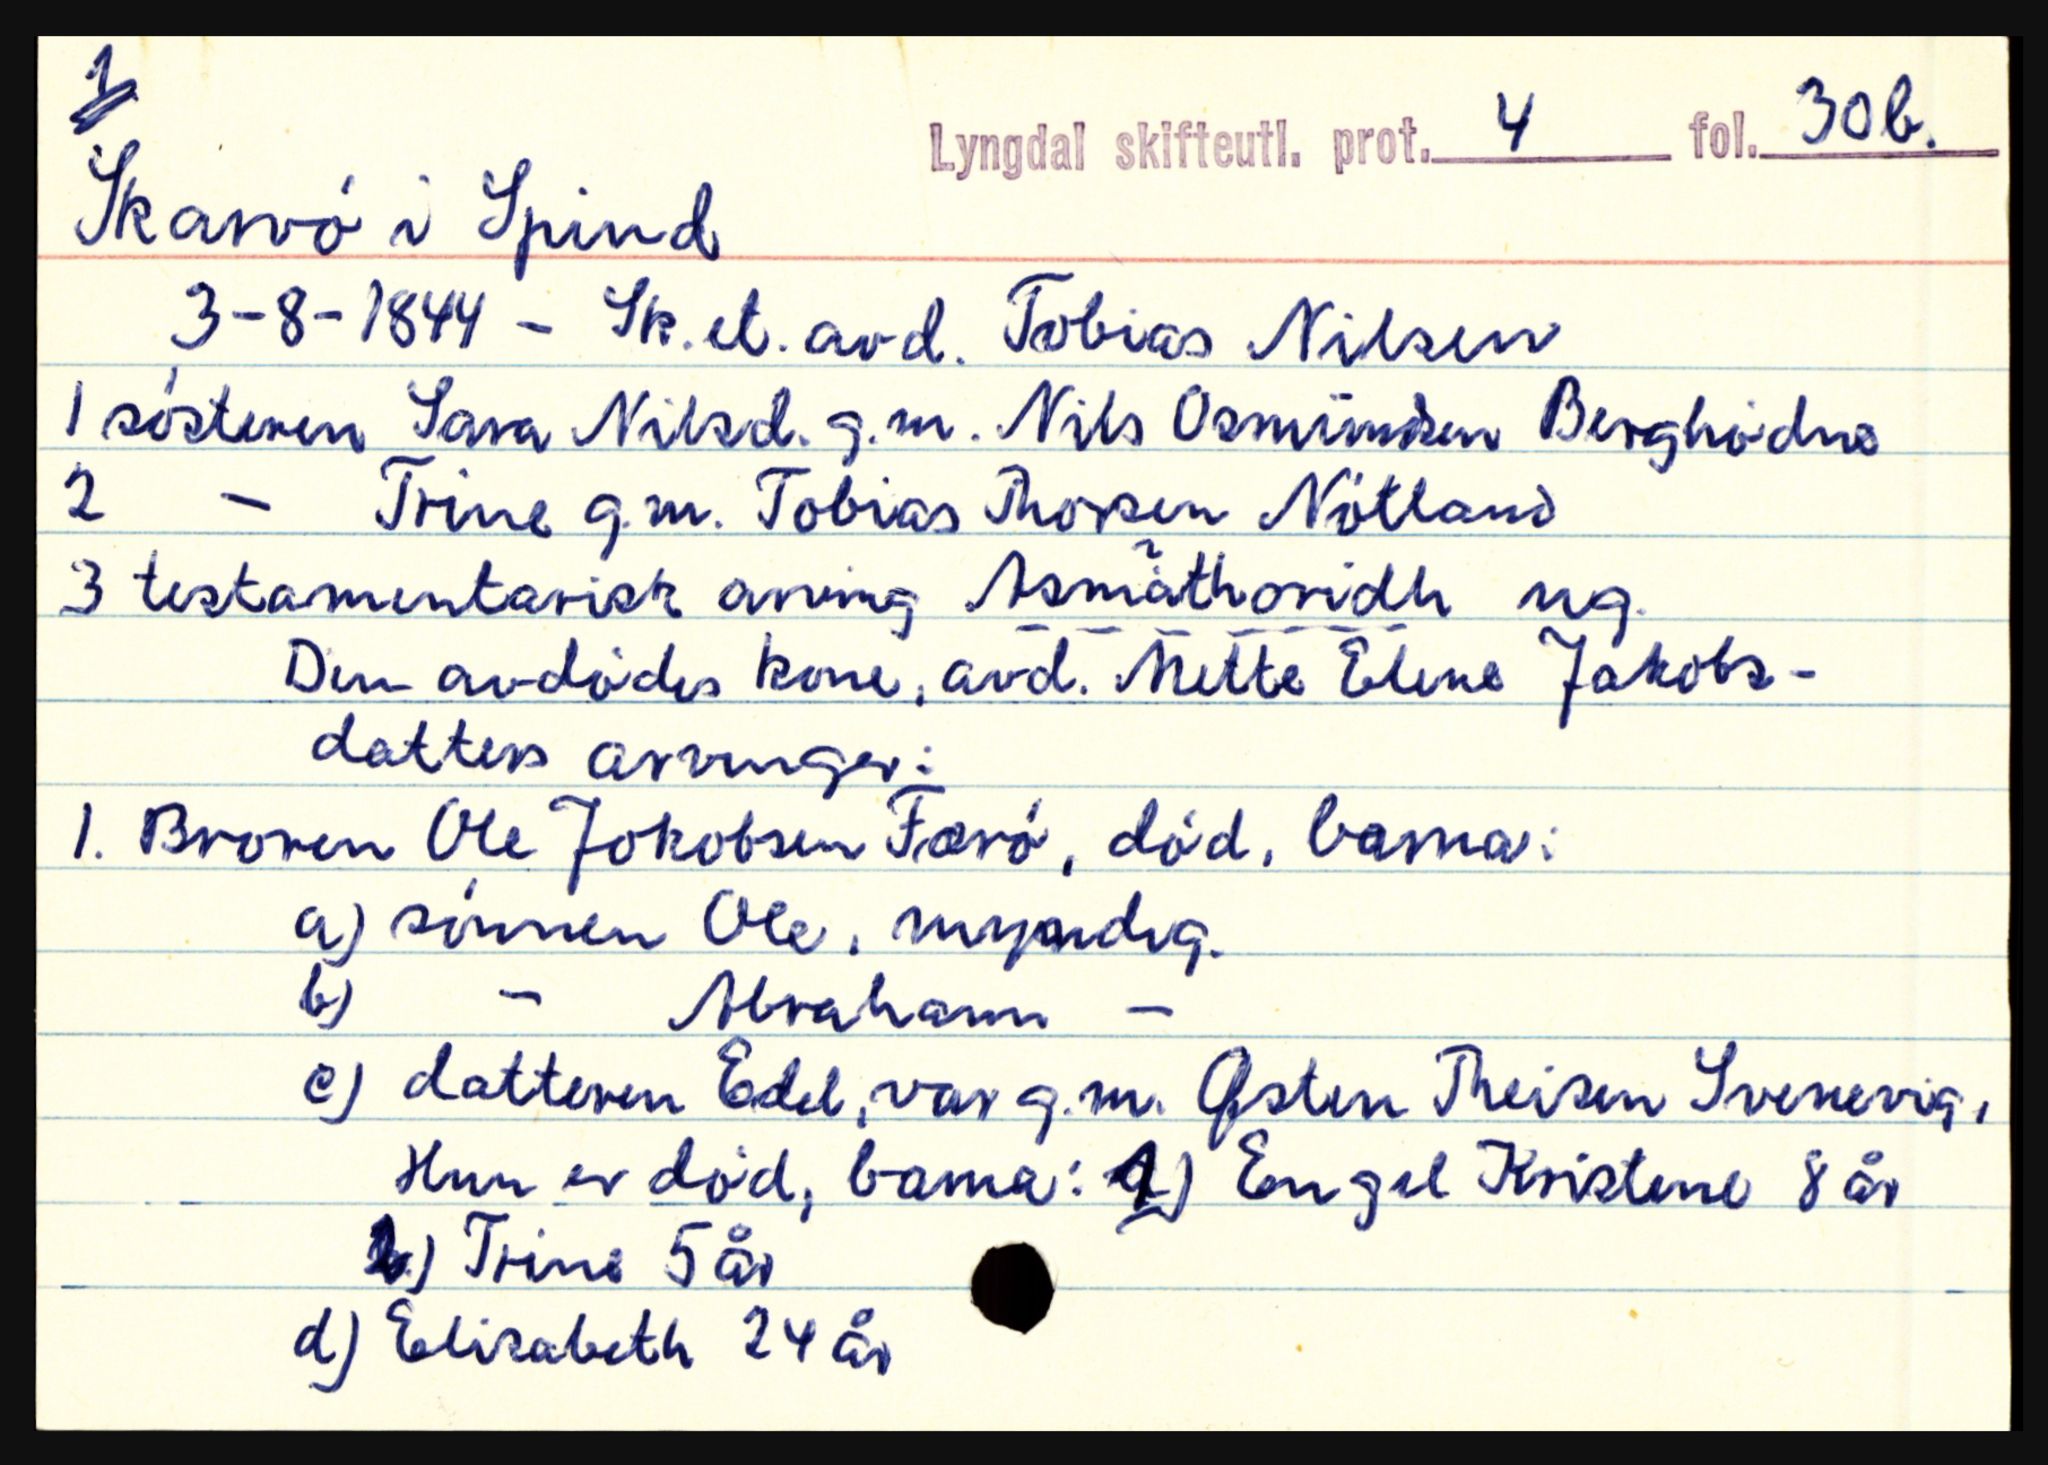 1
Lyngdal skifteutl. prot. 4 fol. 30b.
Skarvö i Spind
3-8-1844 - Sk. et. avd. Tobias Nilsen
1 søsteren Sara Nilsd. g.m. Nils Osmündsen Berghødne
2 - Trine g.m. Tobias Thorsen Nøtland
3 testamentarisk arving ng.
Den avdødes kone, avd. Mette Elene Jakobs-
datters arvinger:
1. Broren Ole Jakobsen Færø, død, barna:
a) sønnen Ole, myndig.
b) - Abraham -
c) datteren Edel, var g.m. Østen Theisen Svenevig,
Hun er død, barna: 1) Engel Kristene 8 år
2) Trine 5 år
d) Elisabeth 24 år